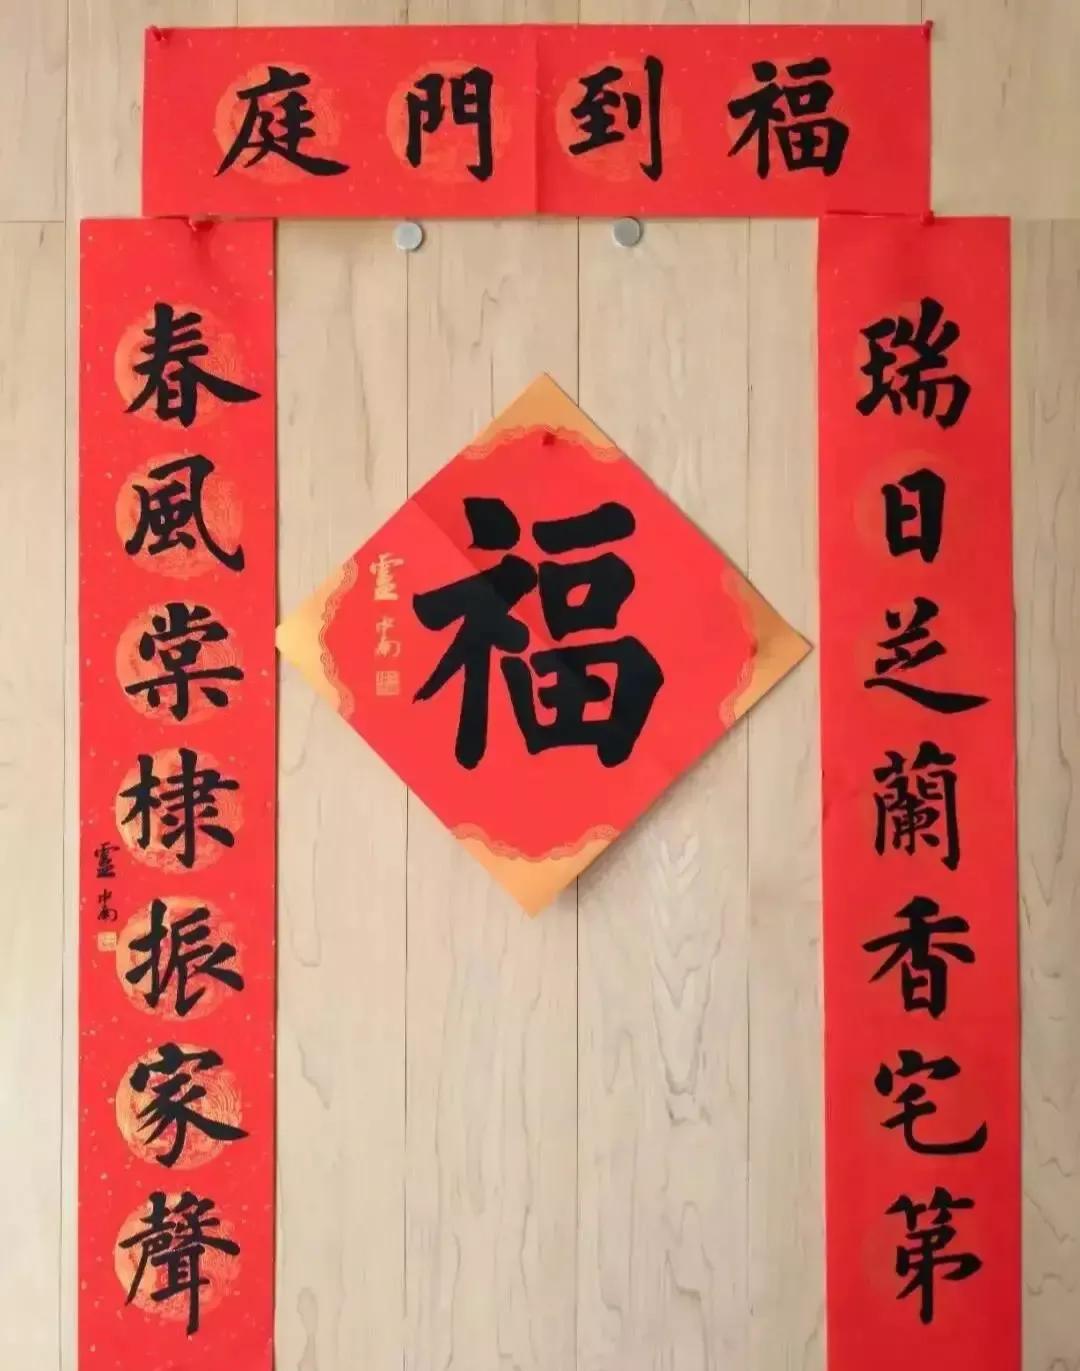 福到門庭
瑞日芝蘭香宅第
春風棠棣振家聲
福